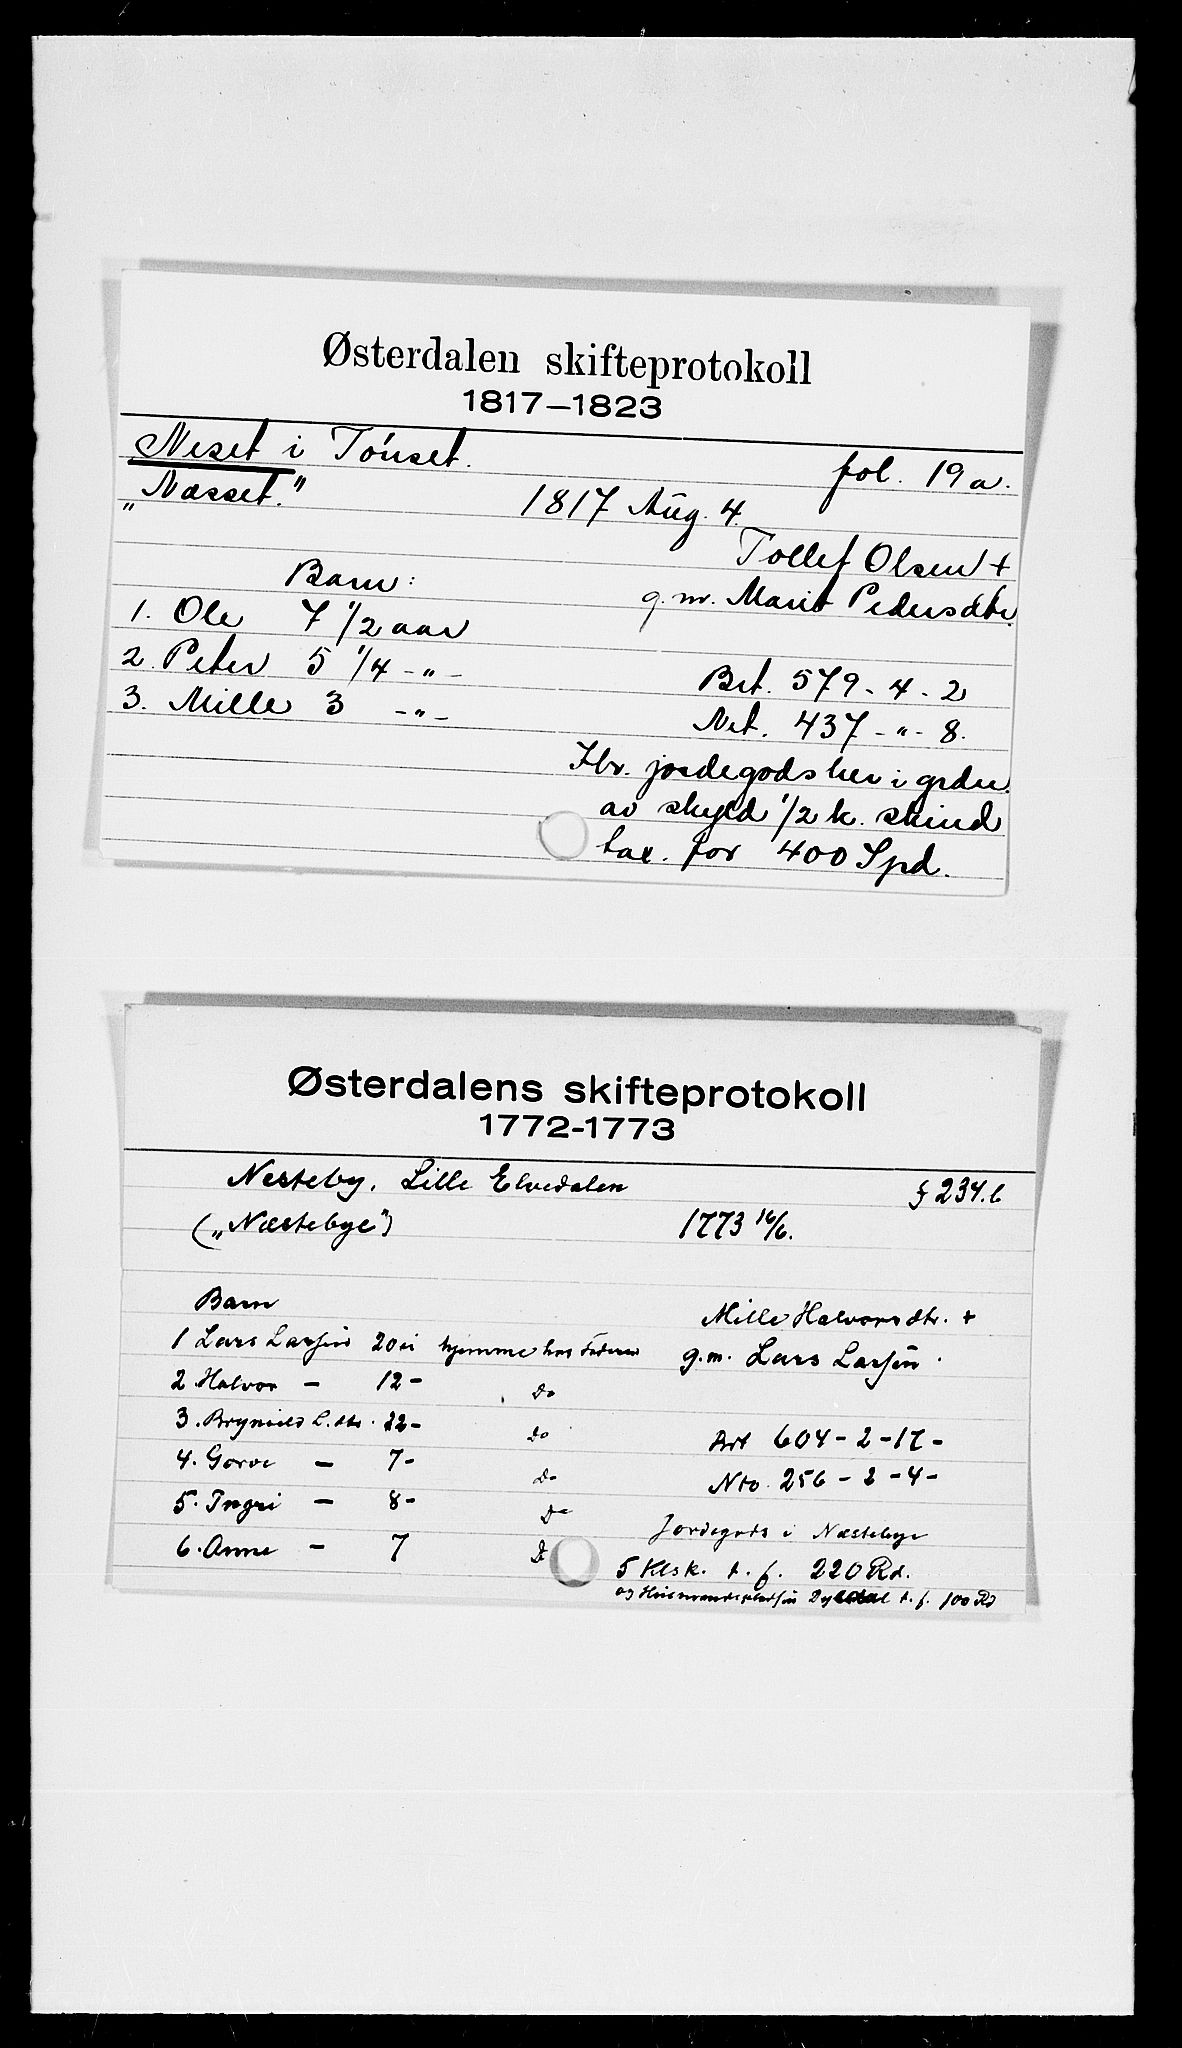 Østerdalen skifteprotokoll
1817–1823
Neset i Tönset. fol. 19a.
„Næsset." 1817 Aug. 4.
Tollef Olsen +
Barn: g.m. Marit Pedersdtr.
1. Ole 7 1/2 aar
2. Peter 5 1/4 -"- Brt. 579-4-2
3. Mille 3 -"- Net. 437-"-8.
Hbr. jordegods her i grden.
av skyld 1/2 k. skind
tax. for 400 Spd.
Østerdalens skifteprotokoll
1772-1773
Nesteby, Lille Elvedalen f 234.b
(„Næstebye") 1773 16/6.
Barn Mille Halvorsdtr. +
1 Lars Larsen 20 hjemme hos Faderen g.m. Lars Larsen.
2 Halvor - 12- Do
3. Brynild L.dtr. 22- Do Brt 604-2-17-
4. Gorve - 7- Do Nto. 256-2-4-
5. Ingri - 8- Do Jordegods i Næstebye
6. Anne - 7 Do 5 Klsk. t.f. 220 Rd.
og Husmandspladsen t.f. 100 Rd